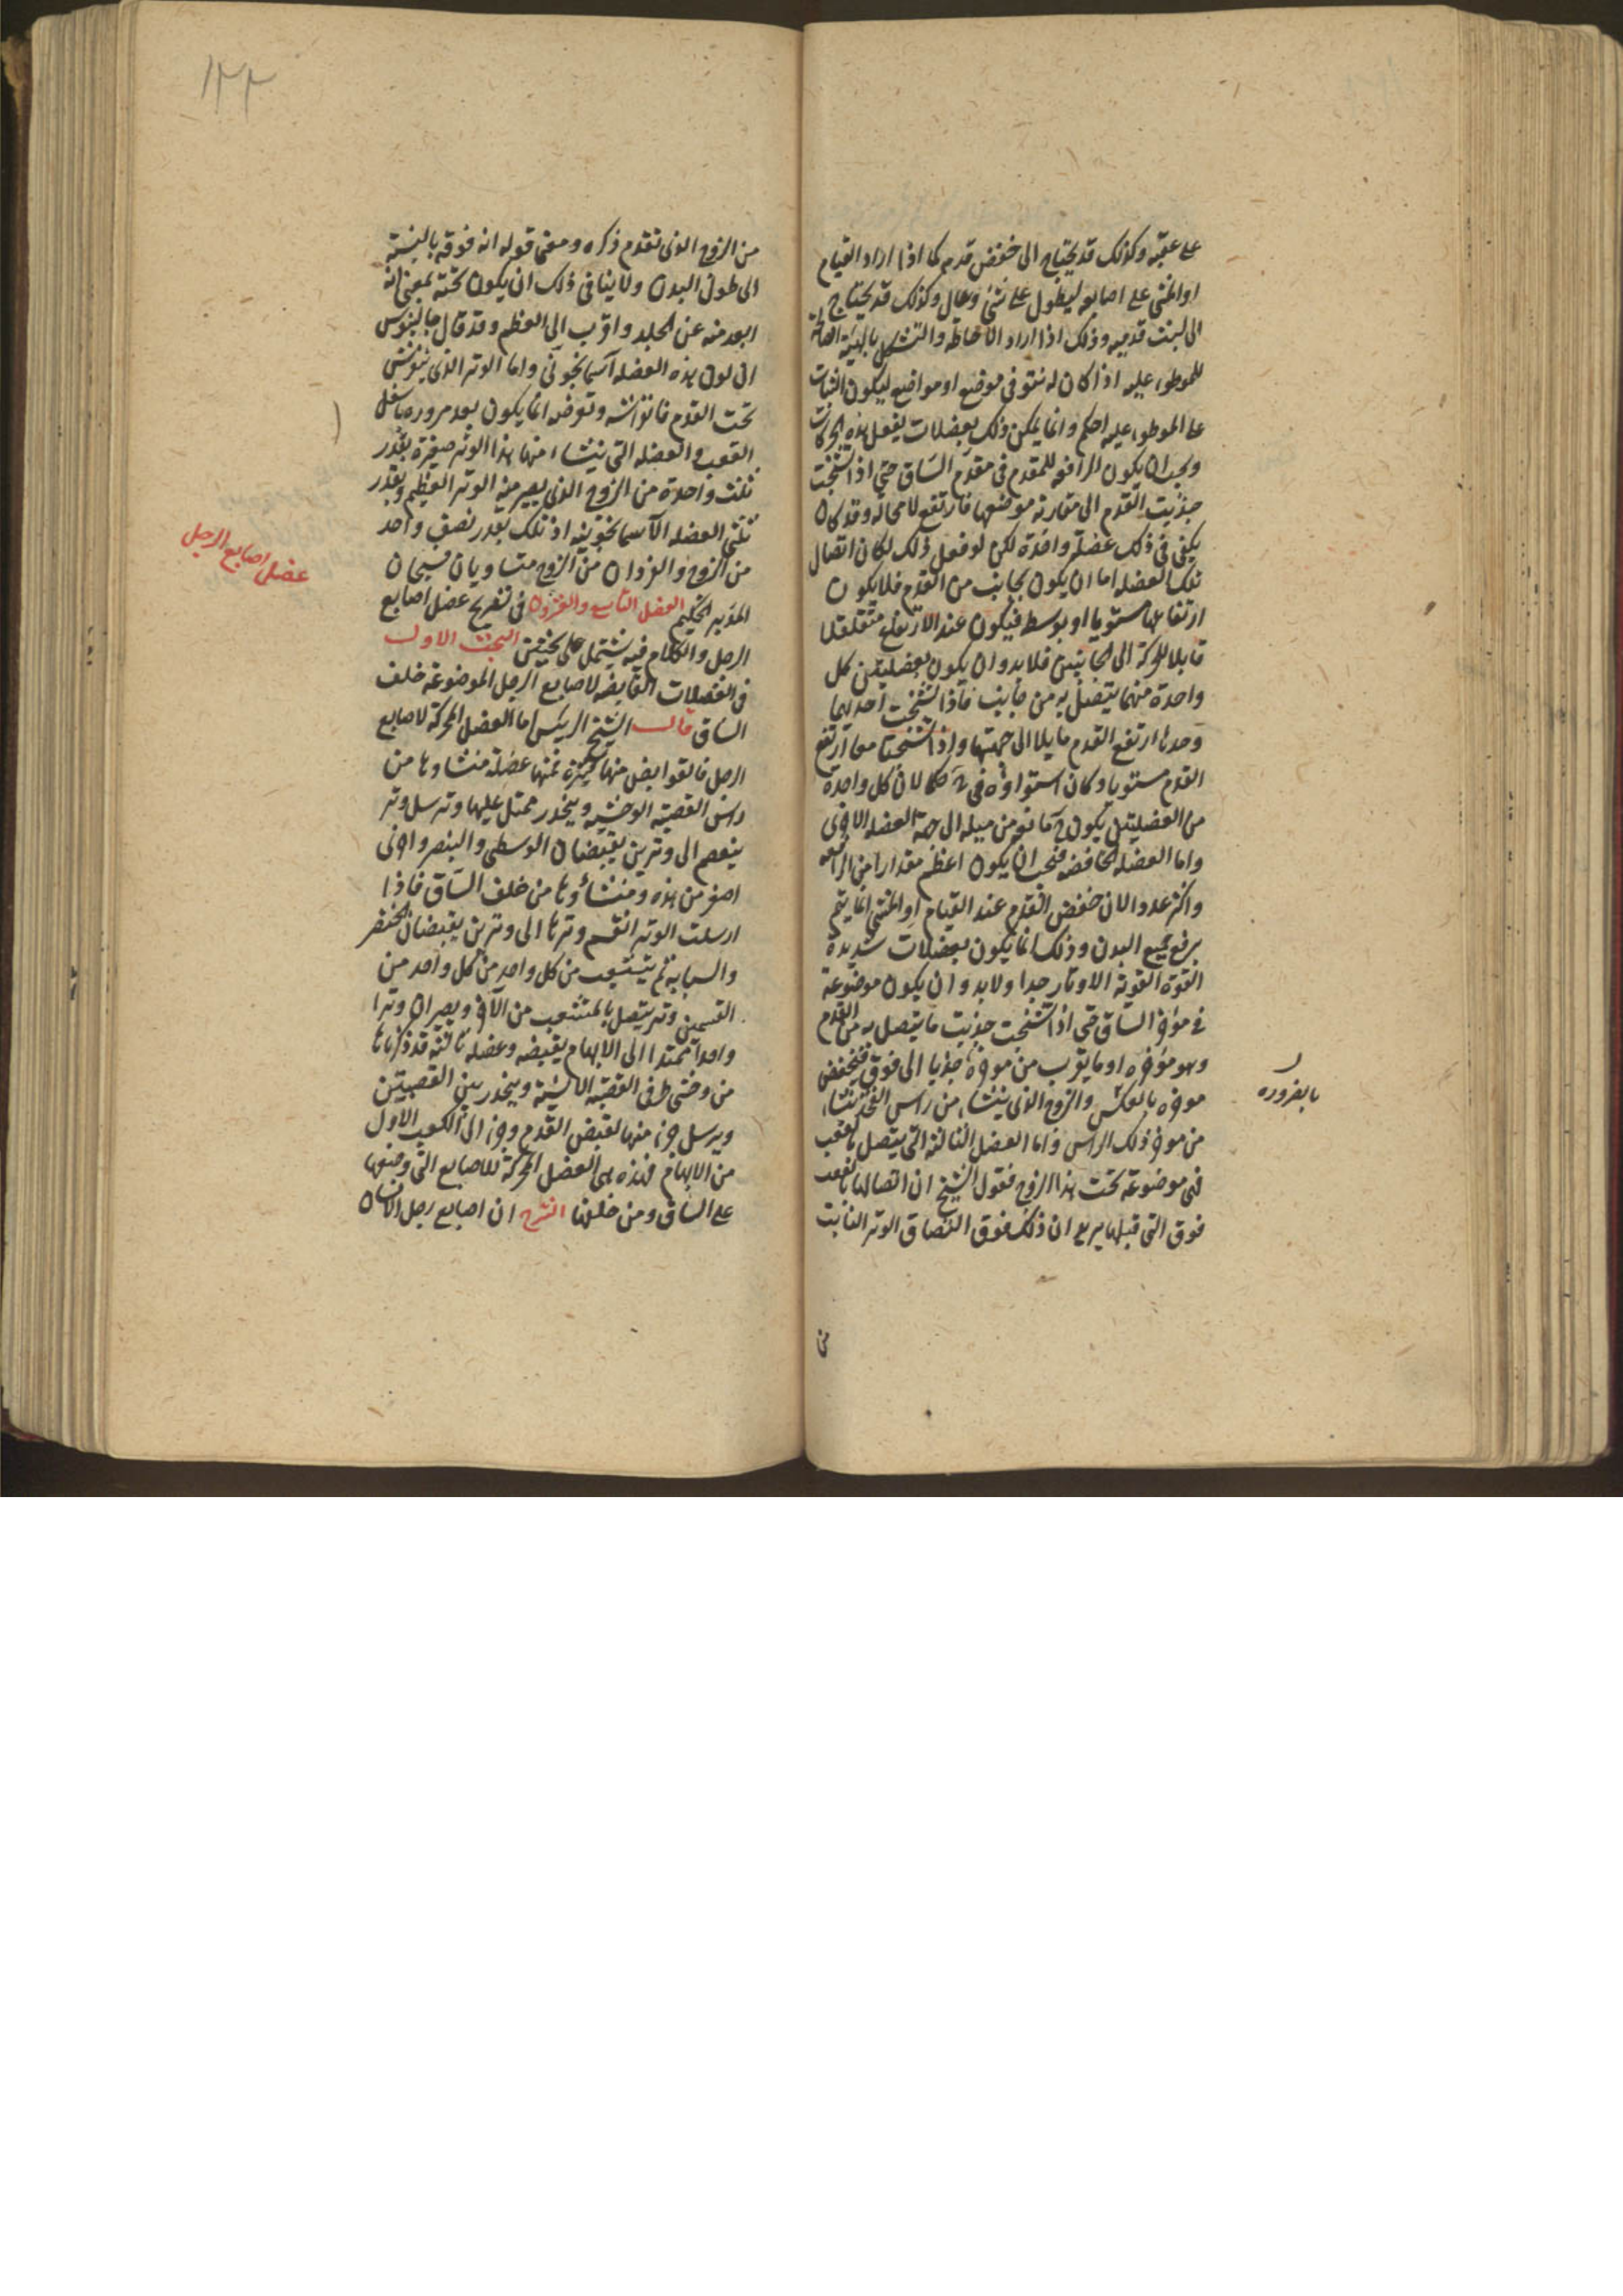 على عقبه وكذلك قد يحتاج الى خفض قدمه كما اذا اراد القيام
او المشي على اصابعه ليطول على شئ وعال وكذلك قد يحتاج
الى قدميه وذلك اذا اراد الاحاطة والتشكل بالهيئة
للموطوء عليه اذا كان له نتو فى موضع او مواضع ليكون الثبات
على الموطوء عليه احكم وانما يمكن ذلك بعضلات يفعل هذه الحركات
ويجب ان يكون الرافعه للمقدم فى مقدم الساق حتى اذا تشنجت
جذبت القدم الى مقاربة موضعها فارتفع لا محاله وقد كان
يكفى فى ذلك عضلة واحدة لكن لو فعل ذلك لكان اتصال
تلك العضله اما ان يكون بجانب من القدم فلا يكون
ارتفاعها مستويا او بوسط فيكون عند الارتفاع متقلقلا
قابلا للحركة الى الجانبين فلا بد وان يكون بعضلتين كل
واحدة منهما يتصل به من جانب فاذا تشنجت احديهما
وحدها ارتفع القدم مايلا الى جهتها واذا تشنجتا معا ارتفع
القدم مستويا وكان استواؤه فى محكما لان كل واحدة
من العضلتين يكون مانعه من ميله الى جهة العضله الاخرى
واما العضله الخافضه فيجب ان يكون اعظم مقدارا من الرافعه
واكثر عددا لان خفض القدم عند القيام او المشي انما يتم
برفع جميع البدن وذلك انما يكون بعضلات شديدة
القوة القوية الاوتار جدا ولا بد وان يكون موضوعة
فى مؤخر الساق حتى اذا تشنجت جذبت ما يتصل به من القدم
وهو مؤخره او ما يقرب من موخره جذبا الى فوق فينخفض
موخره بالعكس والزوج الذى ينشاء من راس الفخذ ينشاء
من موخر ذلك الراس واما العضل الثالثه التى يتصل بالعقب
فهى موضوعة تحت هذا الزوج فقول الشيخ ان اتصالها بالعقب
فوق التى قبلها يريد ان ذلك فوق التصاق الوتر النابت
بالضروره
من
١٢٢
من الزوج الذى تقدم ذكره ومعنى قوله انه فوقه بالنسبة
الى طول البدن ولا ينافى ذلك ان يكون تحته بمعنى انه
ابعد منه عن الجلد واقرب الى العظم وقد قال جالينوس
ان لون هذه العضله آسمانجونى واما الوتر الذى
تحت القدم فانفراشه وتعرضه انما يكون بعد مروره باسفل
العقب والعضله التى ينشاء منها هذا الوتر صغيرة بقدر
ثلث واحدة من الزوج الذى يصير منه الوتر العظيم وبقدر
ثلثى العضله الآسمانجونيه اذ تلك بقدر نصف واحد
من الزوج والفردان من الزوج متساويان فسبحان
المدبر الحكيم الفصل التاسع والعشرون فى تشريح عضل اصابع
الرجل والكلام فيه يشتمل على بحثين البحث الاول
فى العضلات القابضه لاصابع الرجل الموضوعة خلف
الساق قال الشيخ الرئيس اما العضل المحركة لاصابع
الرجل فالقوابض منها كثيرة فمنها عضلة منشاوها من
راس القصبة الوحشيه وينحدر ممتد عليها وترسل وتر
ينقسم الى وترين يقبضان الوسطى والبنصر واخرى
اصغر من هذه ومنشاؤها من خلف الساق فاذا
ارسلت الوتر انقسم وترها الى وترين يقبضان الخنصر
والسبابه ثم يتشعب من كل واحد من كل واحد من
القسمين وتر يتصل بالمتشعب من الآخر ويصيران وترا
واحدا ممتدا الى الابهام يقبضه وعضله ثالثة قد ذكرناها
من وحشى طرفى القصبة الانسية وينحدر بين القصبتين
ويرسل جزء منها لقبض القدم وجزء الى الكعب الاول
من الابهام فهذه هى العضل المحركة للاصابع التى وضعها
على الساق ومن خلفها الشرح ان اصابع رجل الانسان
عضل اصابع الرجل